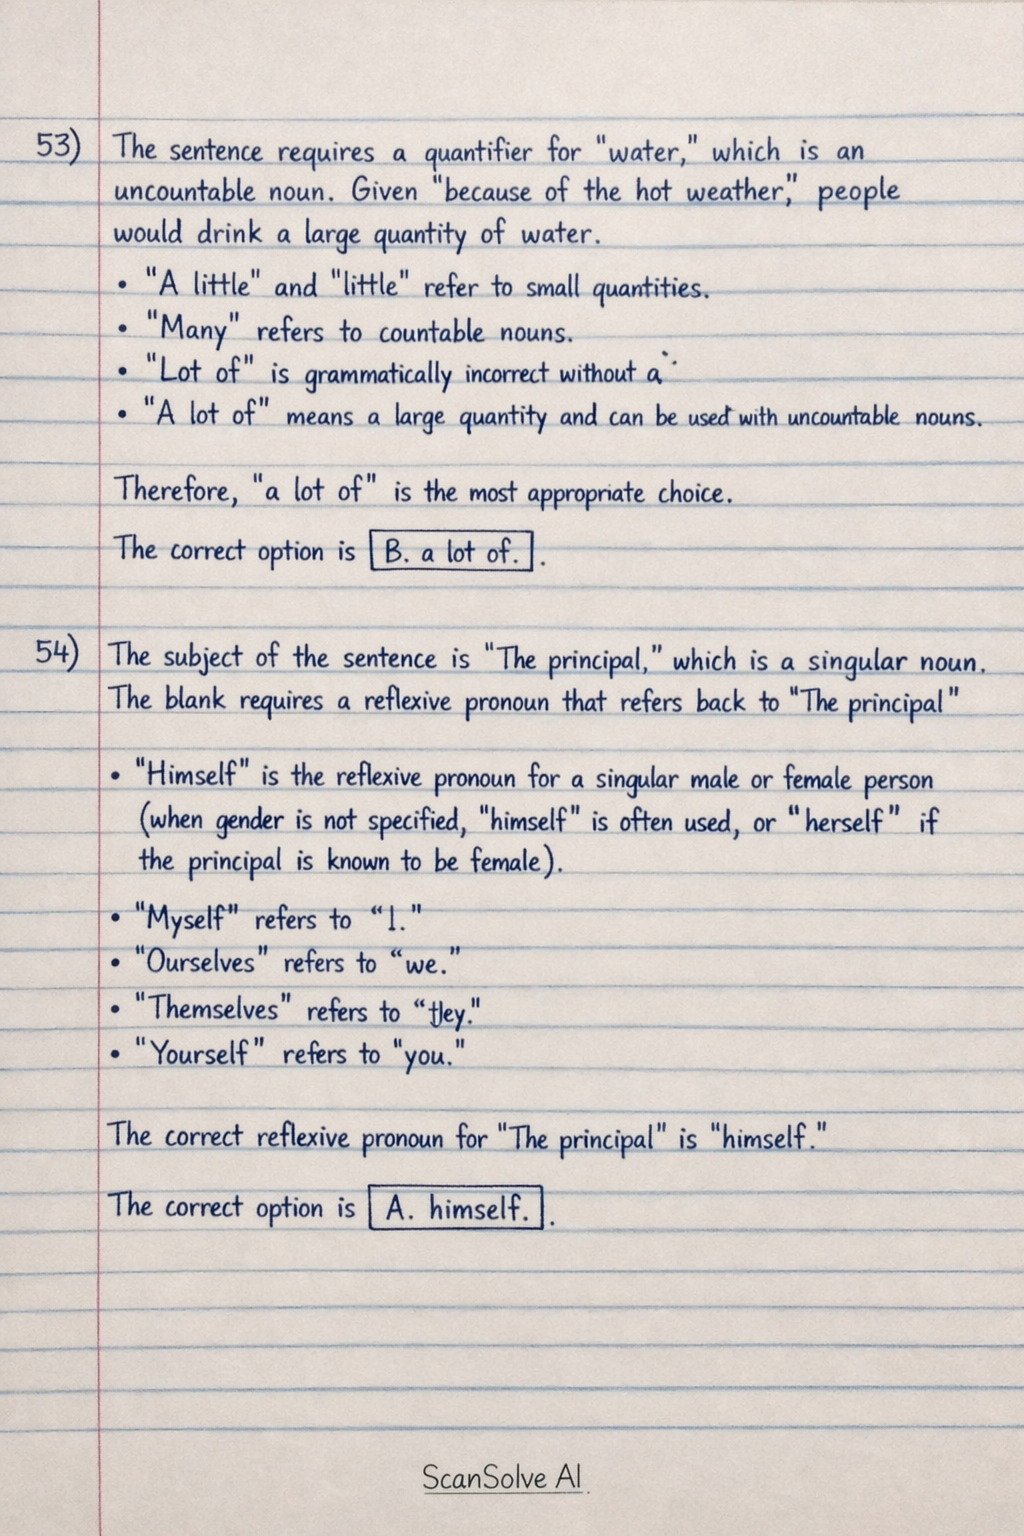 53) The sentence requires a quantifier for "water," which is an
uncountable noun. Given "because of the hot weather," people
would drink a large quantity of water.
• "A little" and "little" refer to small quantities.
• "Many" refers to countable nouns.
• "Lot of" is grammatically incorrect without a
• "A lot of" means a large quantity and can be used with uncountable nouns.
Therefore, "a lot of" is the most appropriate choice.
The correct option is B. a lot of. .
54) The subject of the sentence is "The principal," which is a singular noun.
The blank requires a reflexive pronoun that refers back to "The principal"
• "Himself" is the reflexive pronoun for a singular male or female person
(when gender is not specified, "himself" is often used, or "herself" if
the principal is known to be female).
• "Myself" refers to "I."
• "Ourselves" refers to "we."
• "Themselves" refers to "
• "Yourself" refers to "you."
The correct reflexive pronoun for "The principal" is "himself."
The correct option is A. himself. .
ScanSolve AI